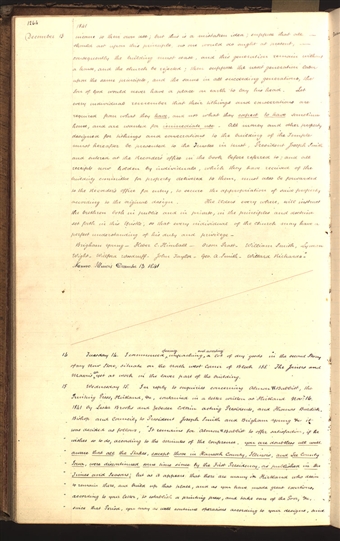 1841
December 13 means to live here all; but this is a mistaken idea; suppose that all
thinks act upon this principle, as one works as might at present, an
consequently the building must cease, and this generation remain without
a house, and the church be rejected; then suppose the next generation labor
upon the same principle, and the same in all succeeding generations, the
Son of God would never have a place on earth to lay his head. Let
every individual remember that their tithings and consecrations are
required from what they have, and not what they expect to have sometime
hence, and are wanted for immediate use. All money and other property
designed for tithings and consecrations to the building of the Temple
must hereafter be presented to the Trustee in trust, President Joseph Smith,
and entered at the Recorder's office in the book before referred to; and all
receipts now holden by individuals, which they have received of the
building committee for property delivered to them, must also be forwarded
to the Recorder's Office for entry, to secure the appropriation of said property
according to the original design. The Elders every where, will instruct
the brethren both in public and in private, in the principles and doctrine
set forth in this Epistle, so that every individual in the church may have a
perfect understanding of his duty and privilege.
Brigham Young, Heber C. Kimball, Orson Pratt, William Smith, Lyman
Wight, Wilford Woodruff, John Taylor, Geo A. Smith, Willard Richards.
Nauvoo Illinois December 13. 1841
14 Tuesday 14. I commenced opening, unpacking and a lot of my goods in the second story
of my Store, situate on the north west corner of Block 155. The Joiners and
Masons at work in the lower part of the building.
15 Wednesday 15. In reply to inquiries concerning Almon W. Babbitt, the
Printing Press, Kirtland, &c., contained in a letter written at Kirtland Nov 16.
1841 by Lester Brooks and Zebedee Coltrin acting Presidents, and Thomas Burdick,
Bishop and Council, to President Joseph Smith and Brigham Young &c. it
was decided as follows, "It remains for Almon W. Babbitt to offer satisfaction, if he
wishes so to do, according to the minutes of the conference, you are doubtless all well
aware that all the Stakes, except those in Hancock County, Illinois, and Lee County
Iowa, were discontinued some time since by the First Presidency, as published in the
Times and Seasons; but as it appears that there are many in Kirtland who desire
to remain there, and build up that place, and as you have made great exertions,
according to your letter, to establish a printing press, and take care of the poor, &c.
since that Period, you may as well continue operations according to your designs, and